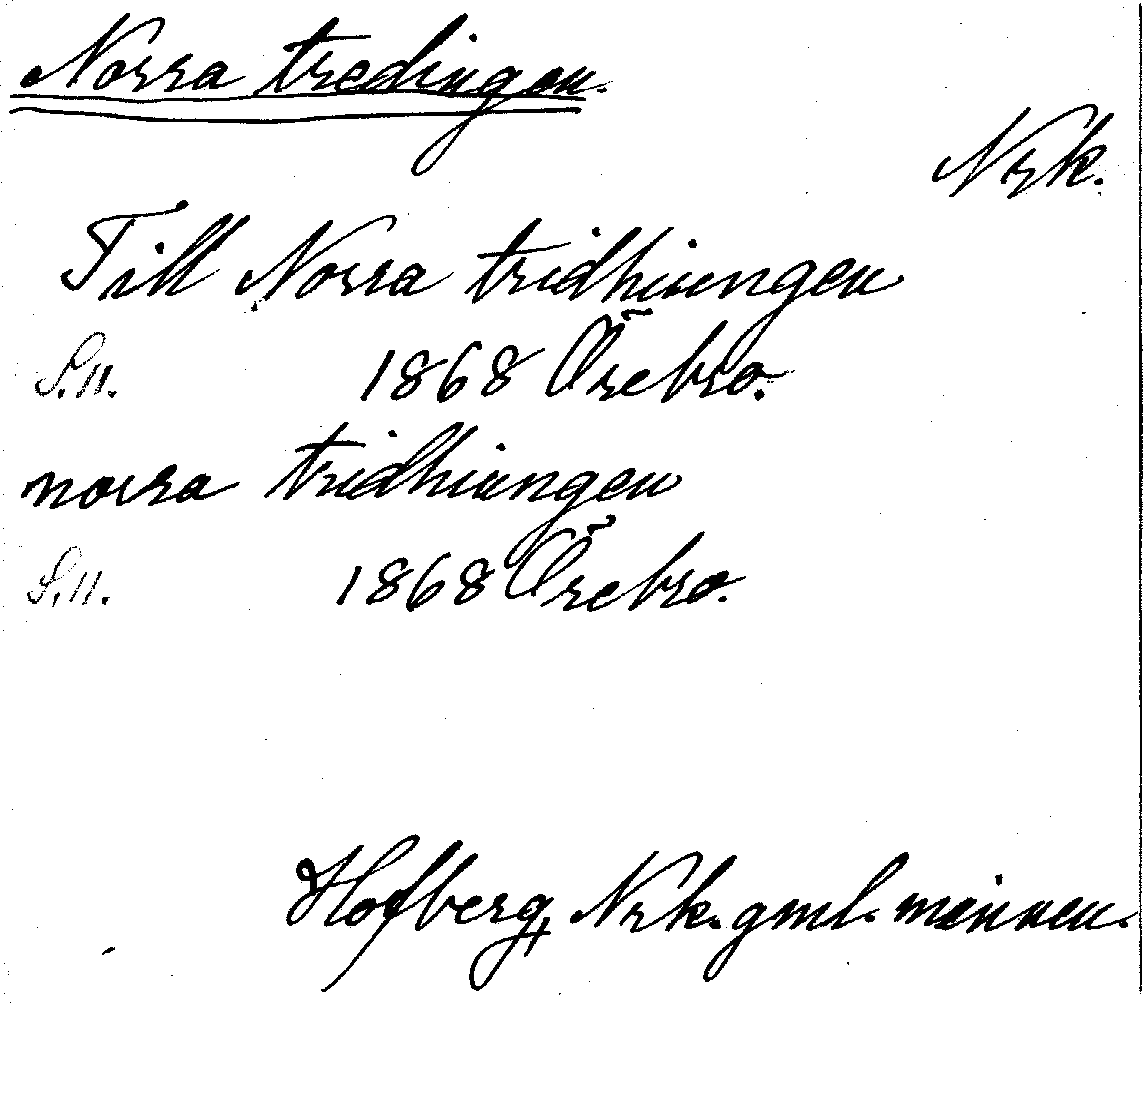 Norra tredingen.
Nrk.
Till Norra tridhiungen
S. 11. 1868 Örebro.
norra tridhiungen
S. 11. 1868 Örebro.
Hofberg, Nrk. gml. minnen.